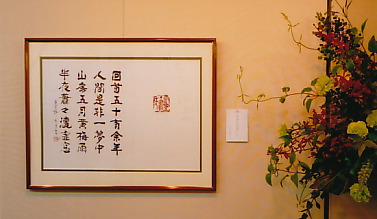 回首五十有余年
人間是非一夢中
山房五月黄梅雨
半夜蕭々灑虚窓